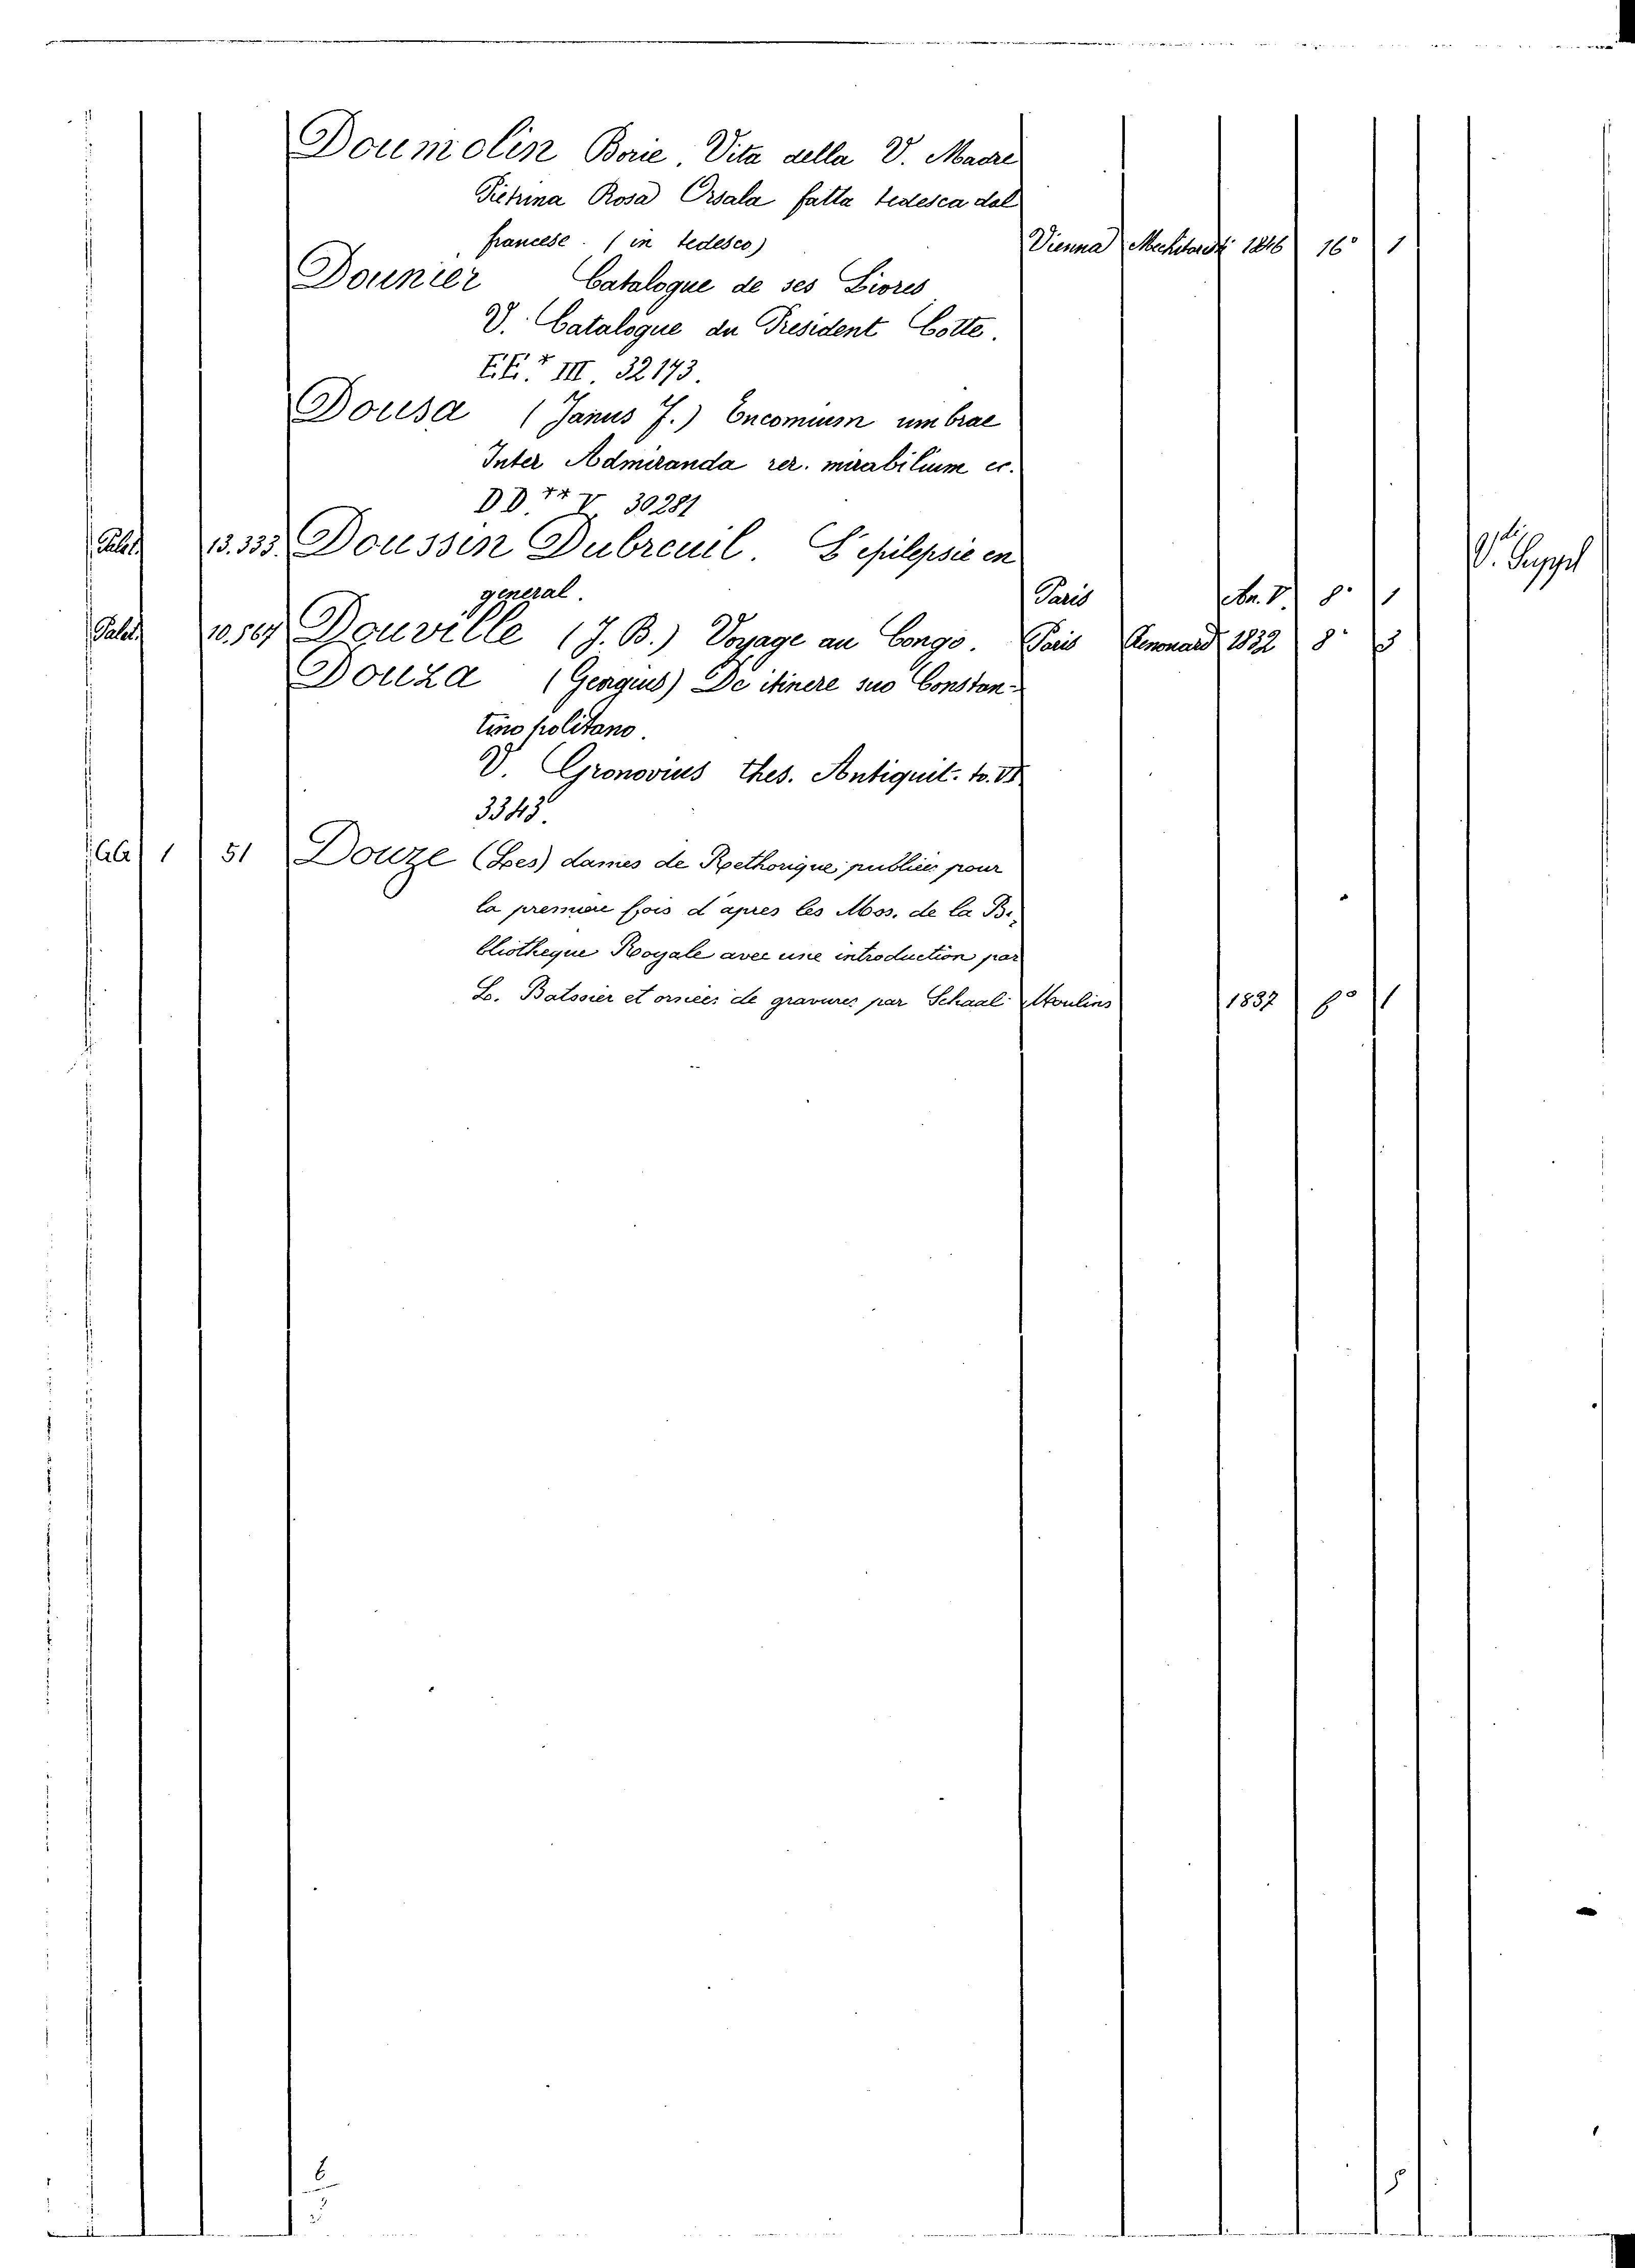 Doumolin Borie. Vita della V. Madre
Pietrina Rosa Orsala fatta tedesca dal
francese. (in tedesco) Vienna Mechitaristi 1846 16° 1
Dounier Catalogue de ses Livres
V. Catalogue du President Cotte.
EE.* III. 32173.
Dousa (Janus J.) Encomium umbrae
Inter Admiranda rer. mirabilium ec.
DD.** V. 30281
Palat. 13.333. Doussin Dubreuil. L'epilepsie en V. Suppl
general. Paris An. V. 8° 1
Palat. 10.567 Douville (J. B.) Voyage au Congo. Paris Renouard 1832 8° 3
Douza (Georgius) De itinere suo Constan-
tinopolitano.
V. Gronovius thes. Antiquit. to. VI
3343.
1 51 Douze (Les) dames de Rhethorique publiees pour
la premiere fois d'apres les Mss. de la Bi-
bliotheque Royale avec une introduction par
L. Batssier et ornées de gravures par Schaal Moulins 1837 8° 1
6
5